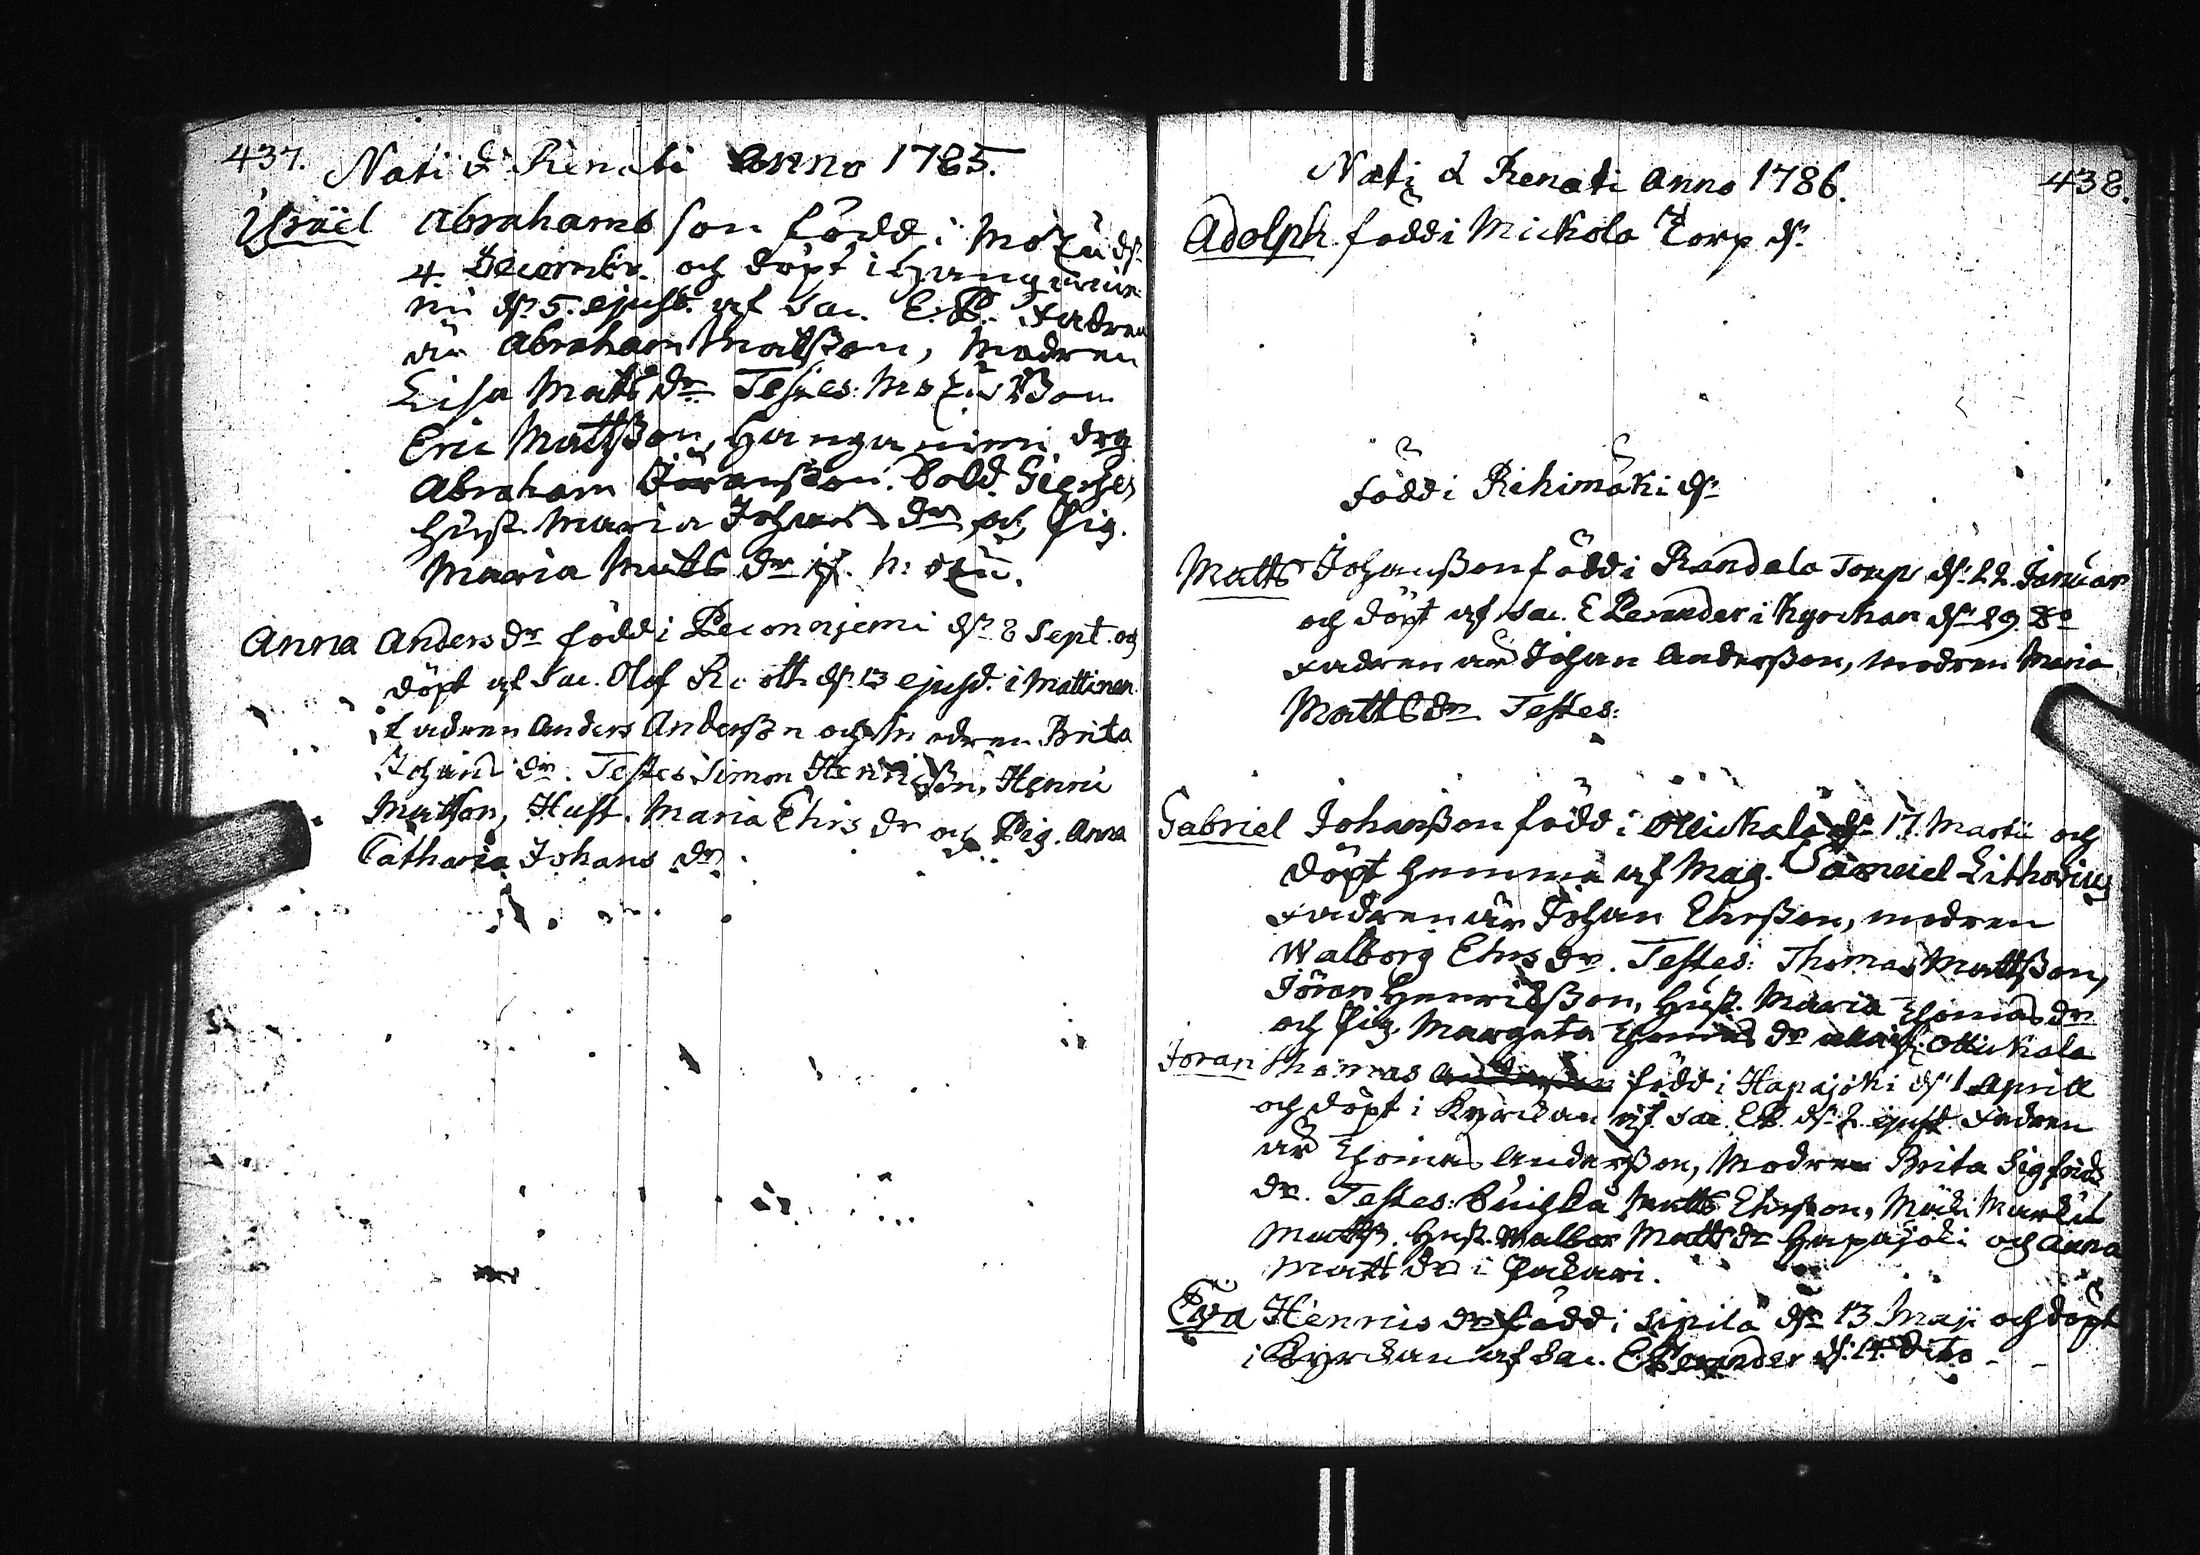 437. Nati & Renati Anno 1785.
Israël Abrahams son född i Mozu dn
4. Decembr. och döpt i Hanganie
mi dn 5. ejusd. af Sac. E. P. Fadren
är Abraham Mattsson, Modren
Lisa Matts dr Testes: Mozu Bon
Eric Mattsson, Hanganiemi drg
Abraham Jöransson. Sold.
Hust. Maria Johans dr och Pig.
Maria Matts dr if. Mozu.
Anna Anders dr född i Leconnjemi dn 8 Sept. och
döpt af Sac. Olof Rooth dn 13 ejusd. i Mattinen
Fadren Anders Andersson och Modren Brita
Johans dr. Testes Simon Henricsson, Henric
Matsson, Hust. Maria Ehrs dr och Pig. Anna
Catharia Johans dr
Nati & Renati Anno 1786. 438.
Adolph född i Mickola Torp dn
född i Rihimäki dn
Matts Johansson född i Randala Torp dn 22. Januar
och döpt af Sac. E Perander i Kyrckan dn 29. do
Fadren är Johan Andersson, modren Maria
Matts dr Testes:
Gabriel Johansson född i Ollickala dn 17. Martii och
döpt hemma af Mag. Samuel Lithovius
Fadren är Johan Ehrsson, modren
Walborg Ehrs dr. Testes: Thomas Mattsson,
Jöran Henricsson, Hust. Maria Thomas dr
och Pig. Margeta Thomas dr alla if. Ollickala
Joran Thomas Andersson född i Hapajoki dn 1 Aprill
och döpt i Kyrckan af Sac. EP. dn 2. ejusd Fadren
är Thomas Andersson, Modren Brita Sigfrids
dr. Testes: Matts Ehrsson, Mäki Markus
Matts. Hust. Walbor Matts dr Hapajoki och Anna
Matts dr i Packari.
Eva Henrics dr född i Sipilä dn 13 Maji och döpt
i Kyrckan af Sac. E Perander d. 14. Dito - -